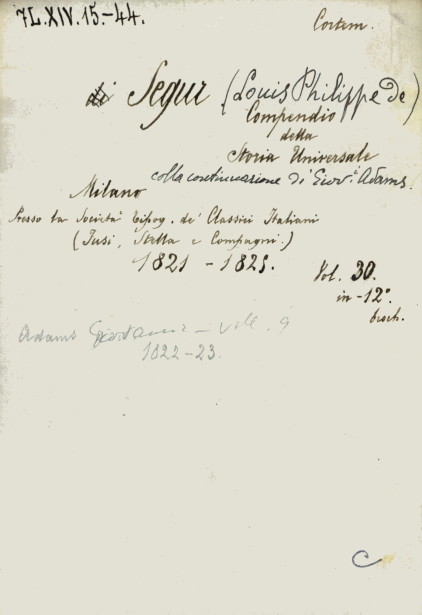 7L.XIV.15.-44.
Contem.
di Segur (Louis Philippe de)
Compendio
della
Storia Universale
colla continuazione di Giov. Adams.
Milano
Presso la Società Tipog. de' Classici Italiani
(Fusi, Stella e Compagni.)
1821 - 1825.
Vol. 30.
in -12°
broch.
Adams Giovanni - voll. 9
1822-23.
C